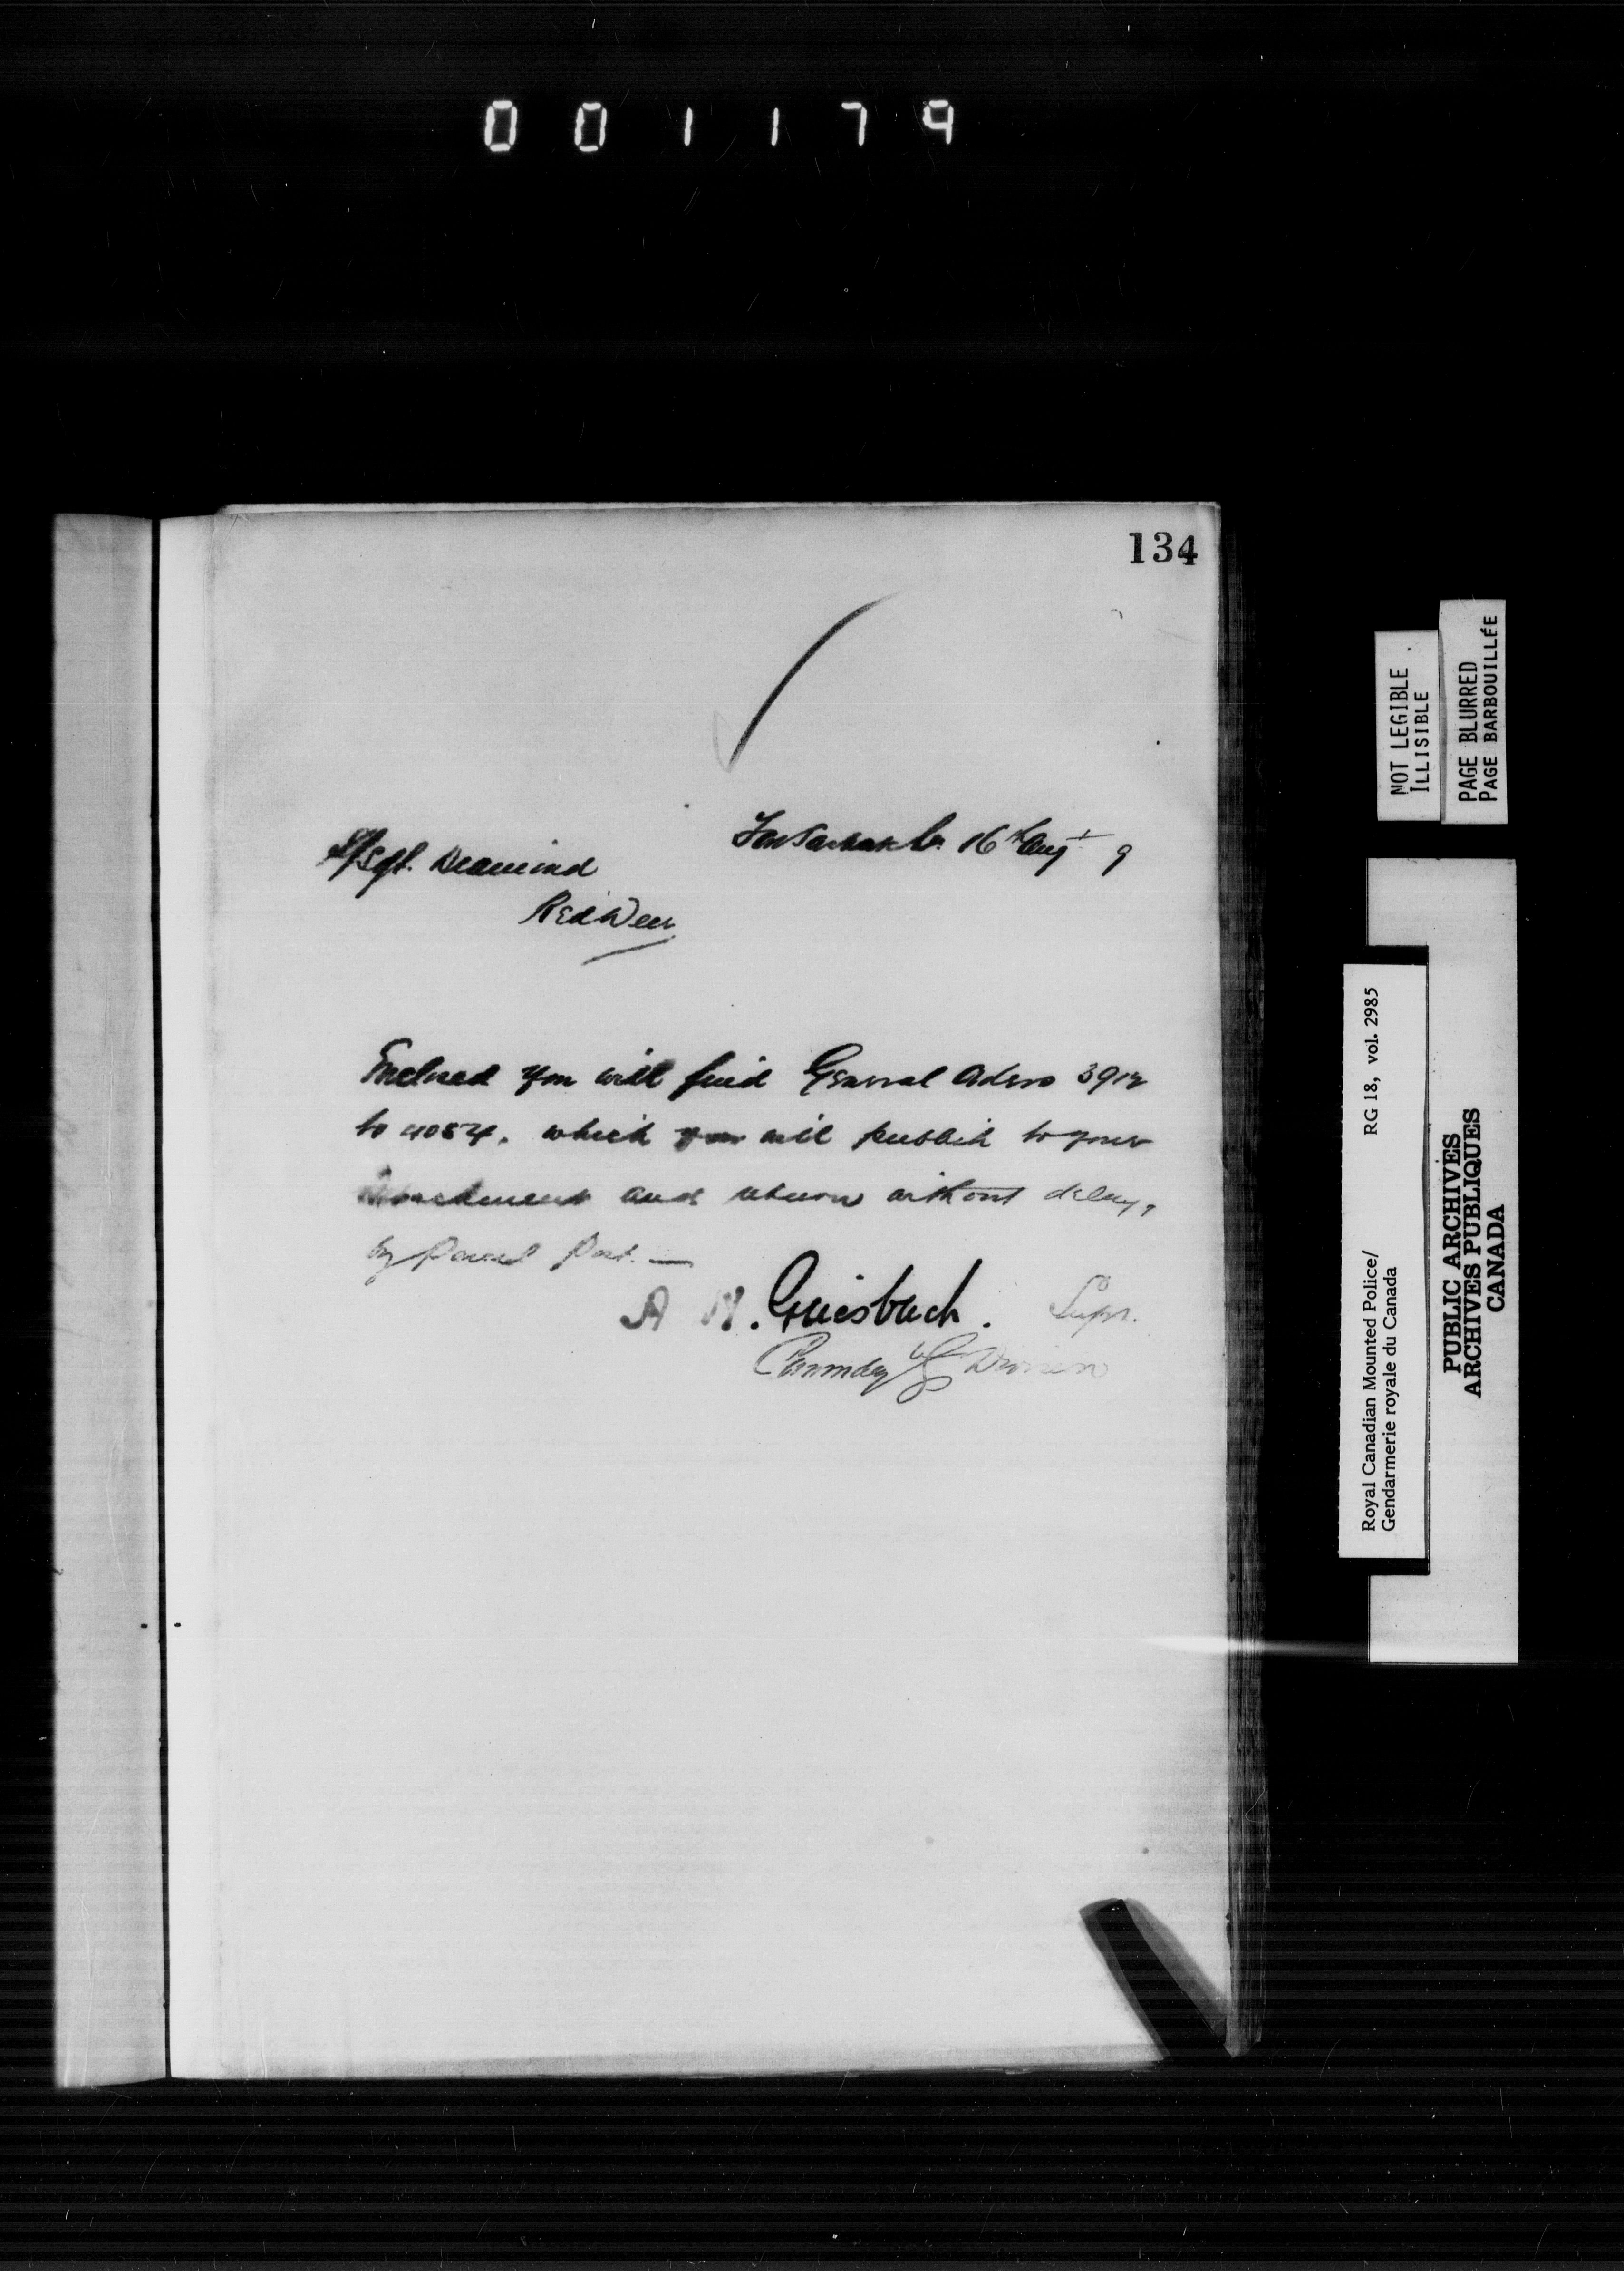 001179
134
Fort Saskatchn. 16th Augt 9
S/Sgt. Diamond
Red Deer
Enclosed you will find General Orders 3912
to 4054, which you will publish to your
Detachment and return without delay,
by Parcel Post. —
A H. Griesbach. Supt.
Commdg G Division
NOT LEGIBLE
ILLISIBLE
PAGE BLURRED
PAGE BARBOUILLÉE
Royal Canadian Mounted Police/ RG 18, vol. 2985
Gendarmerie royale du Canada
PUBLIC ARCHIVES
ARCHIVES PUBLIQUES
CANADA